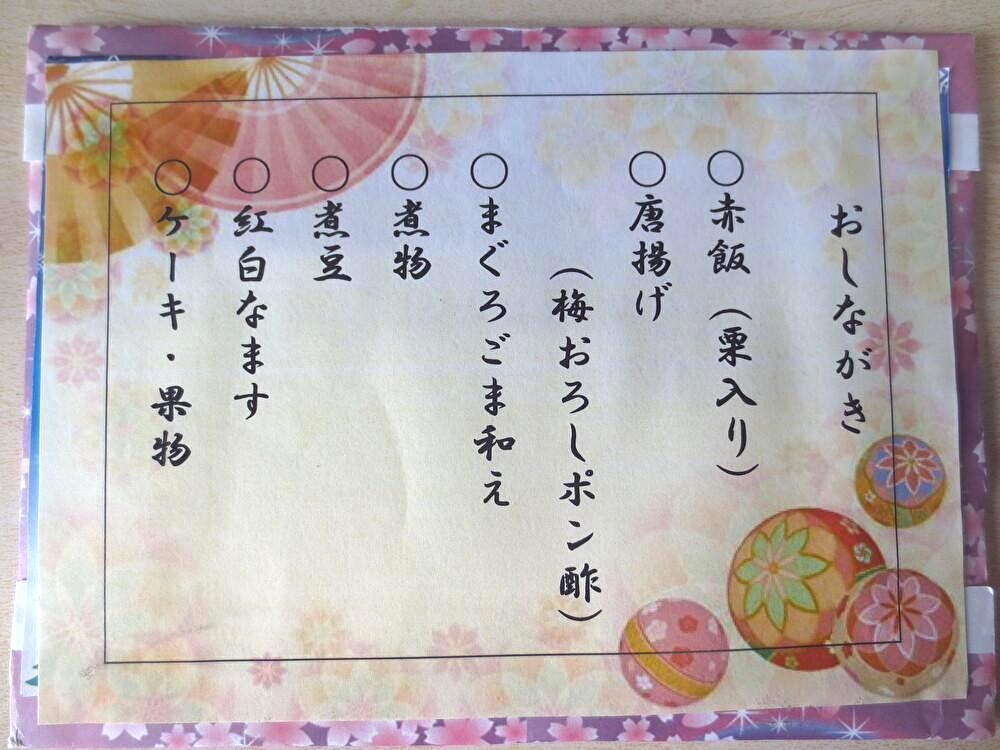 おしながき
○赤飯（栗入り）
○唐揚げ
（梅おろしポン酢）
○まぐろごま和え
○煮物
○煮豆
○紅白なます
○ケーキ・果物